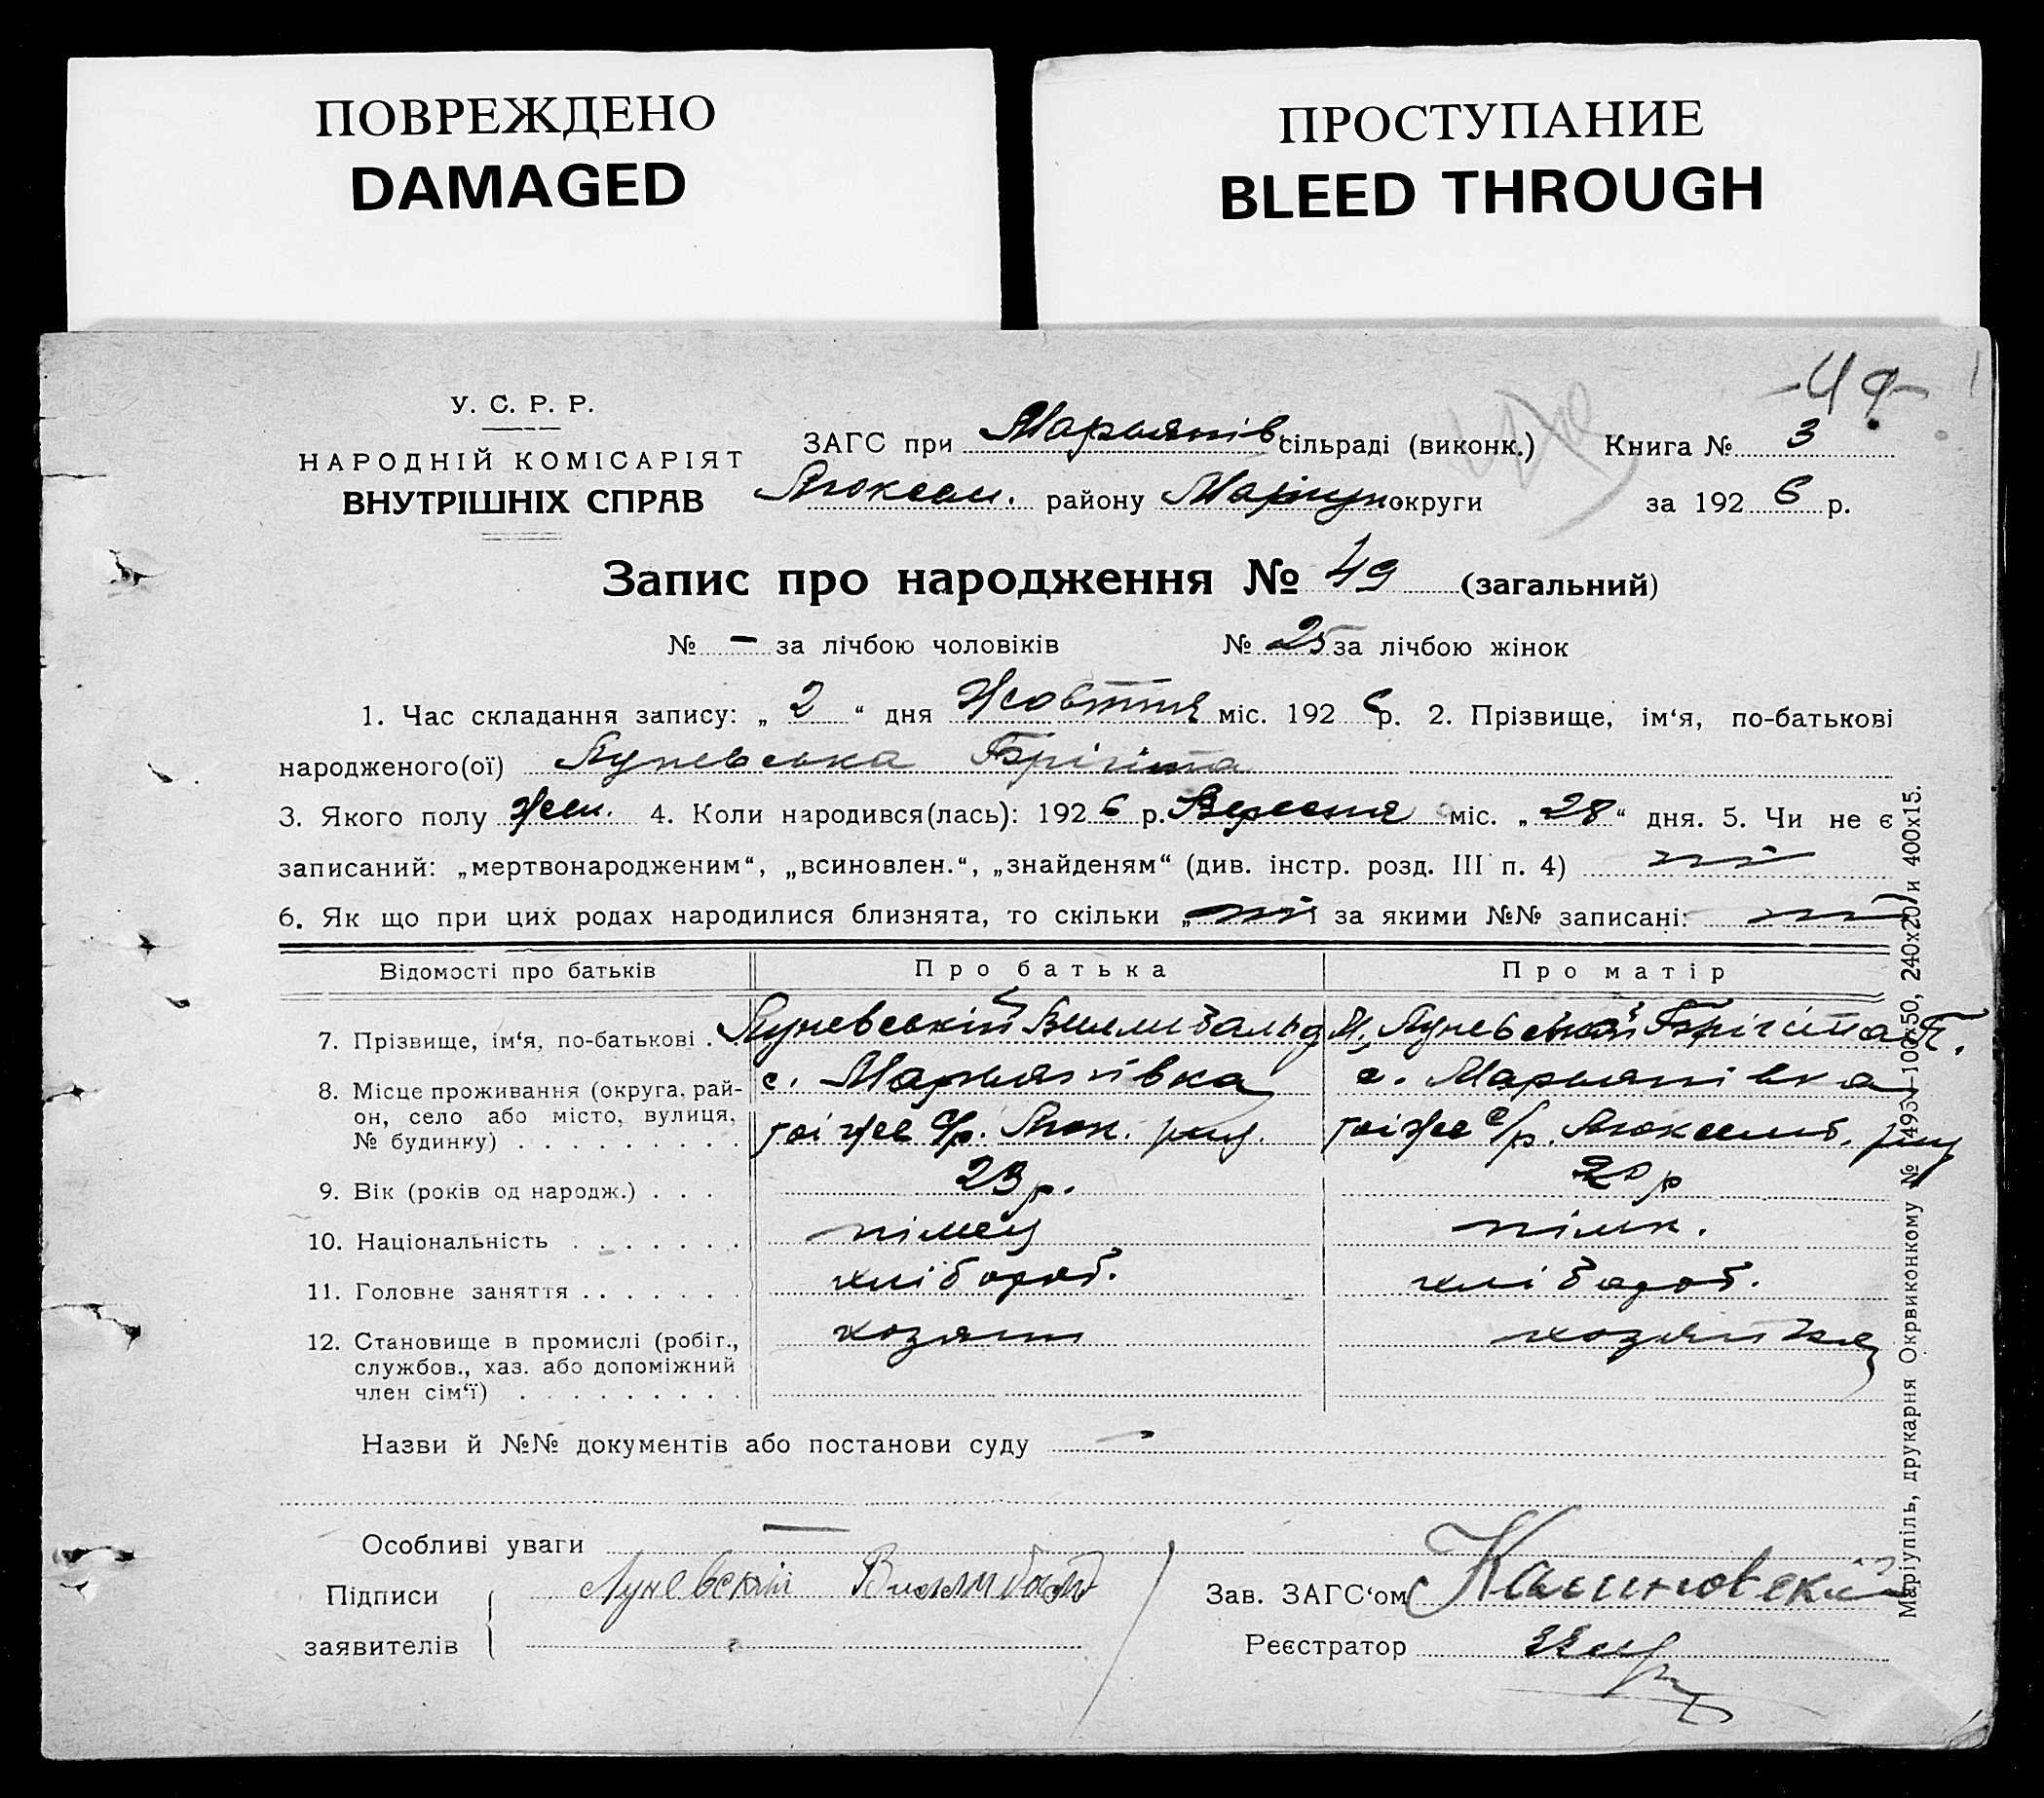 ПОВРЕЖДЕНО
DAMAGED
ПРОСТУПАНИЕ
BLEED THROUGH
-49-
У. С. Р. Р.
НАРОДНІЙ КОМІСАРІЯТ
ВНУТРІШНІХ СПРАВ
ЗАГС при Марьянів сільраді (виконк.) Книга № 3
Люксем. району Маріуп округи за 1926 р.
Запис про народження № 49 (загальний)
№ – за лічбою чоловіків № 25 за лічбою жінок
1. Час складання запису: „ 2 “ дня Жовтня міс. 1926 р. 2. Прізвище, ім‘я, по-батькові
народженого(ої) Луневська Брігіта
3. Якого полу жен. 4. Коли народився(лась): 1926 р. Вересня міс. „ 28 “ дня. 5. Чи не є
записаний: „мертвонародженим“, „всиновлен.“, „знайденям“ (див. інстр. розд. III п. 4) ні
6. Як що при цих родах народилися близнята, то скільки „ ні за якими №№ записані: ні
Відомості про батьків Про батька Про матір
7. Прізвище, ім‘я, по-батькові . . Луневський Виллибальд И. Луневська Брігіта П.
8. Місце проживання (округа, рай-
он, село або місто, вулиця,
№ будинку) . . . . . . . . .
с. Марьянівка с. Марьянівка
тоі же с/р. Люк. рну. тоі же с/р. Люксемб. рну
9. Вік (років од народж.) . . . 23 р. 20 р
10. Національність . . . . . . . німец німк.
11. Головне заняття . . . . . . . хлібороб. хлібороб.
12. Становище в промислі (робіт.,
службов., хаз. або допоміжний
член сім‘ї) . . . . . . . . .
хозяин хозяйка
Назви й №№ документів або постанови суду –
Особливі уваги —
Підписи
заявителів
Луневский Виллибальд
Зав. ЗАГС‘ом
Реєстратор
Маріупіль, друкарня Окрвиконкому № 4951—100×50, 240×207/и 400×15.